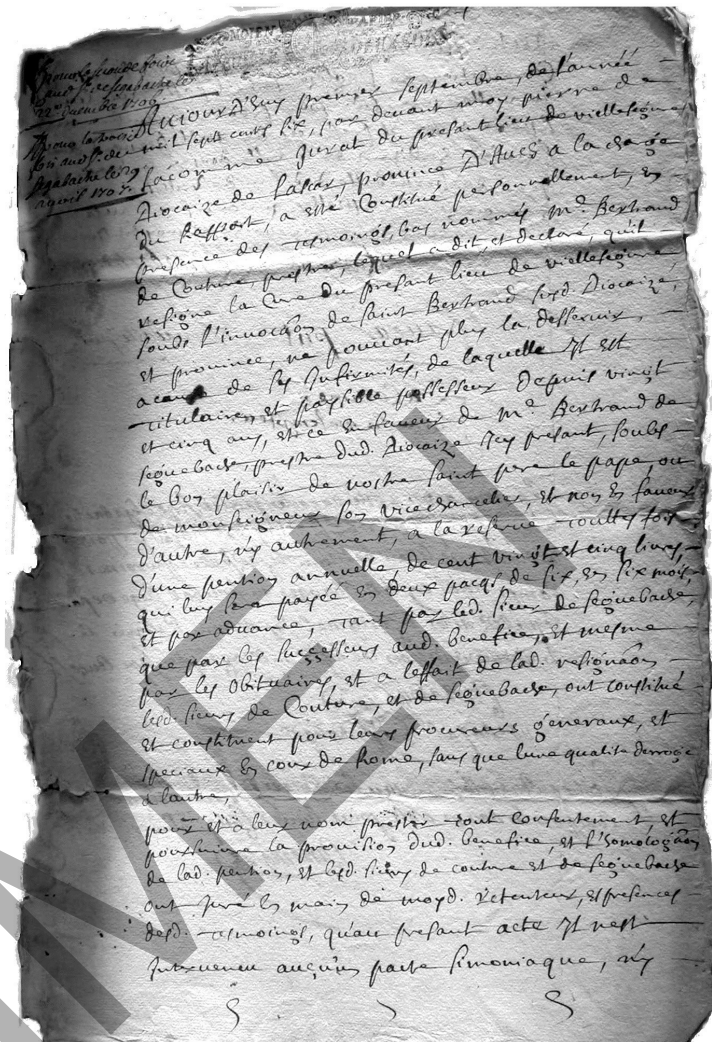 22e décembre 1706
avril 1707.
Aujourd'huy premier septembre, de l'année
mil sept cents six, par devant moy pierre de
Lacomme Jurat du présant lieu de viellesegure
diocaize de Lascar, province D'Auch a la charge
du Rapport, a esté Constitué personnellement, en
presence des tesmoings bas nommés Me. Bertrand
de Couture, prestre, lequel a dit, et declaré, quil
resigne la Cure du presant lieu de viellesegure
soubs l'invocaon de saint Bertrand susd. Diocaize,
et province, ne pouvant plus la desservir,
a cause de ses Infirmités, de laquelle Il est
titulaire, et paysible possesseur depuis vingt
et cinq ans, et ce en faveur de Me. Bertrand de
seguebache, prestre dud. Diocaize Icy presant, soubs
le bon plaisir de nostre saint pere le pape, ou
de monseigneur son vicechancelier, et non en faveur
d'autre, ny autrement, a la reserve touttes fois,
d'une pention annuelle, de cent vingt et cinq livres,
qui luy sera payée en deux pacqs de six, en six mois,
et par advance, tant par led. sieur de seguebache,
que par les successeurs aud. benefice, et mesme
par les Obituaires, et a leffait de lad. resignaon
lesd. sieurs de Couture, et de seguebache, ont constitué
et constituent pour leurs procureurs generaux, et
speciaux en cour de Rome, sans que lune qualite derroge
a lautre,
pour et a leur nom prester tout consentement et
poursuivre la provision dud. benefice, et l'homologaon
de lad. pention, et lesd. sieurs de couture et de seguebache
ont juré es mains de moyd. retenteur, et presences
desd. tesmoings, qu'au presant acte Il nest
Intervenu aucun pacte simoniaque, ny
MEN